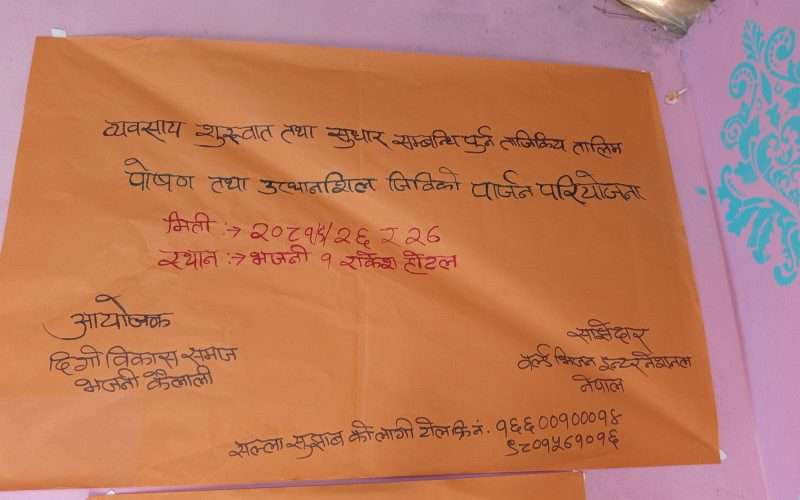 व्यवसाय शुरुवात तथा सुधार सम्बन्धि पुर्न ताजिकिय तालिम
पोषण तथा उत्थानशिल जिविको पार्जन परियोजना
मिती :→ २०८१/५/२६ र २७
स्थान :→ भजनी १ राकेश होटल
आयोजक
दिगो विकास समाज
भजनी कैलाली
साझेदार
वर्ल्ड भिजन इन्टरनेशनल
नेपाल
सल्ला सुझाब को लागी टोल फ्रि नं. १६६००१०००१४
९८०१५७१०१६